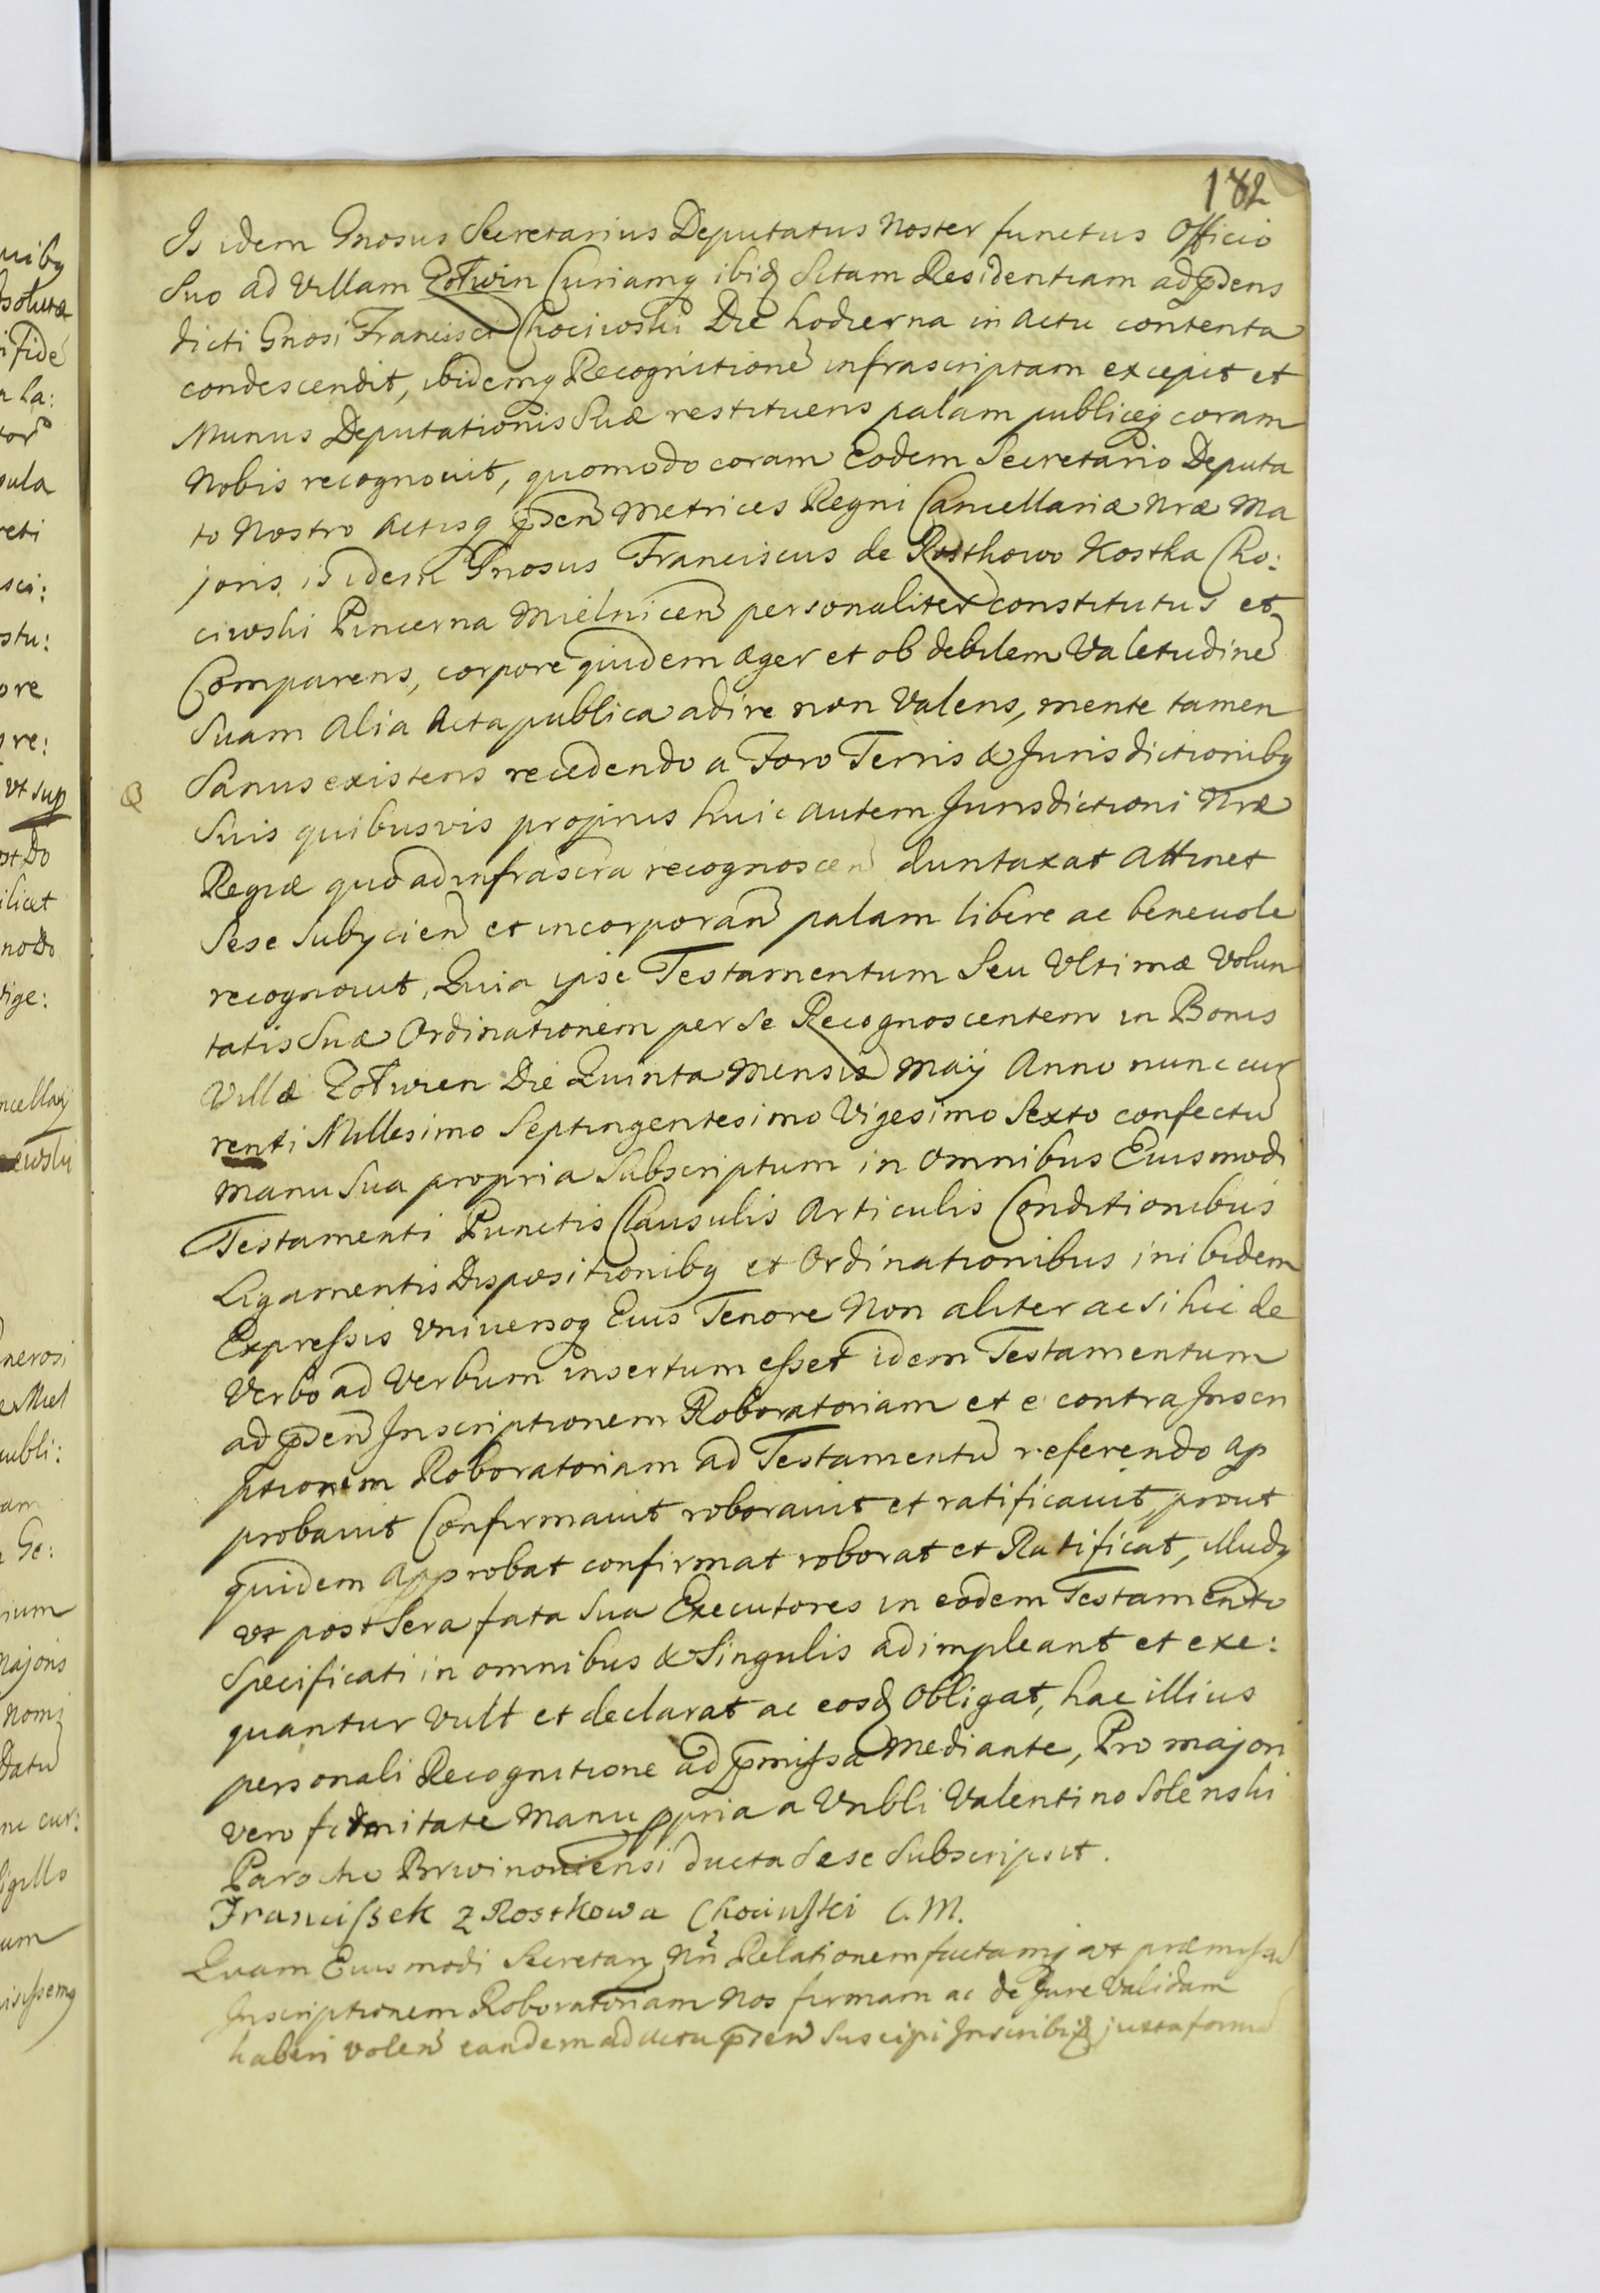 182
Is idem Gnosus Secretarius Deputatus Noster functus Officio
Suo ad Villam Żołwin Curiamq ibiq Sitam Residentiam ad pdens
dicti Gnosi Francisci Chociwski Die hodierna in Actu contenta
condescendit, ibidemq Recognitionē infrascriptam excepit et
Munus Deputationis Suæ restituens palam publiceq coram
Nobis recognovit, quomodo coram Eodem Secretario Deputa
to Nostro Actisq pdeñ Metrices Regni Cancellariæ Nræ Ma
joris, is idem Gnosus Franciscus de Rosthowo Kostka Cho:
ciwski Pincerna Mielniceñ personaliter constitutus et
Comparens, corpore quidem æger et ob debilem Valetudinē
Suam Alia Acta publica adire non Valens, mente tamen
Sanus existens recedendo a Foro Terris & Jurisdictionibq
Suis quibusvis proprius huic autem Jurisdictioni Nræ
Regiæ quo ad infrascra recognosceñ duntaxat Attinet
Sese Subijcieñ et incorporañ palam libere ac benevole
recognovit, Quia ipse Testamentum Seu Ultimæ Volun
tatis Suæ Ordinationem per Se Recognoscentem in Bonis
Villæ Żołwien Die Quinta Mensis Maij Anno nunc cur
renti Millesimo Septingentesimo Vigesimo Sexto confectū
manu Sua propria Subscriptum in Omnibus Eiusmodi
Testamenti Punctis Clausulis Articulis Conditionibus
Ligamentis Dispositionibq et Ordinationibus inibidem
Expressis Universoq Eius Tenore Non aliter ac Si hic de
Verbo ad Verbum insertum esset idem Testamentum
ad pdeñ Inscriptionem Roboratoriam et e contra Inscri
ptionem Roboratoriam ad Testamentū referendo ap
probavit Confirmavit roboravit et ratificavit, prout
quidem Approbat confirmat roborat et Ratificat, illudq
ut post Sera fata Sua Executores in eodem Testamento
Specificati in omnibus & Singulis adimpleant et exe:
quantur Vult et declarat ac eosq Obligat, hac illius
personali Recognitione ad pmissa Mediante, Pro majori
vero firmitate Manu ppria a Vnbli Valentino Solenski
Parocho Brwinoviensi ducta Sese Subscripsit.
Franciszek z Rostkowa Chociwski C. M.
Quam Eiusmodi Secretarij Nri Relationem factamq ut præmissū
Inscriptionem Roboratoriam Nos firmam ac de Jure Validam
haberi voleñ eandem ad Acta pdeñ Suscipi Inscribiq juxta formā